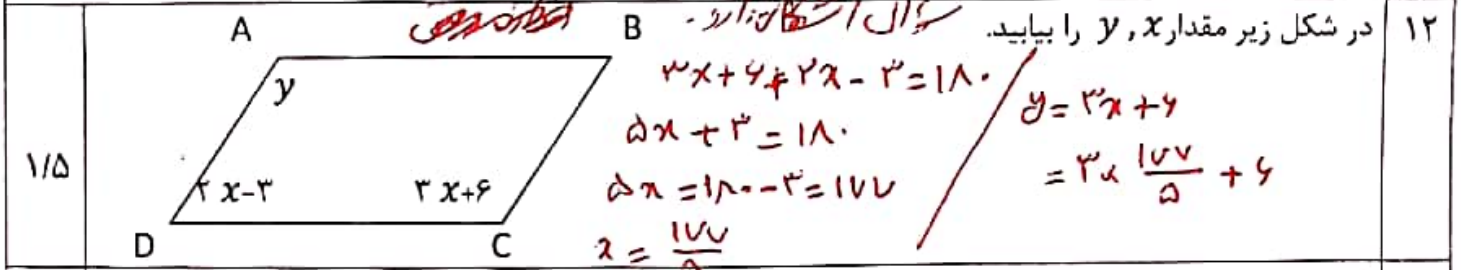 ۱۲ در شکل زیر مقدار y , x را بیابید.
سوال اشکال دارد.
A B
y
۲ x-۳ ۳ x+۶
D C
۱/۵
۳x+۶+۲x-۳=۱۸۰
۵x+۳=۱۸۰
۵x=۱۸۰-۳=۱۷۷
x=۱۷۷/۵
y=۳x+۶
=۳×۱۷۷/۵+۶